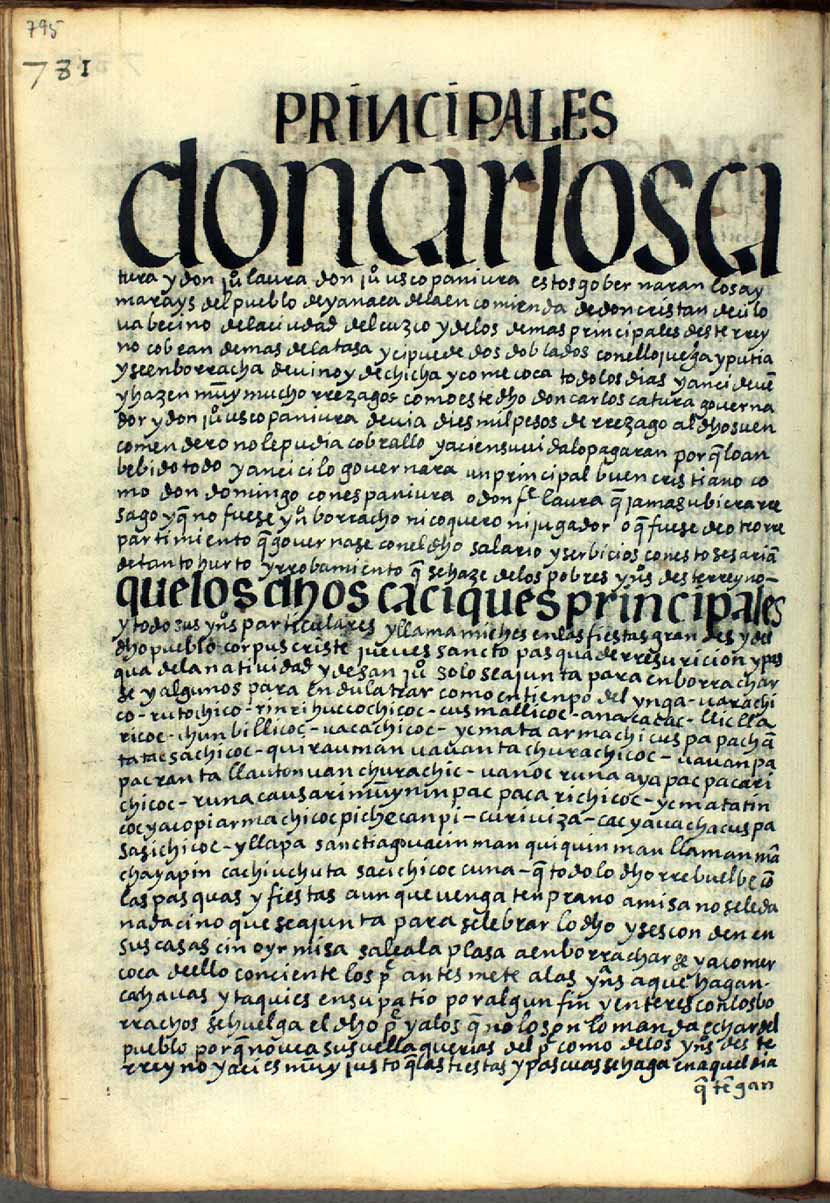 795
781
PRINCIPALES
don carlos ca
tura y don juo laura don juo uscopaniura estos gobernaran los ay
marays del pueblo de yanaca de la encomienda de don cristan de cilo
ua becino de la ciudad del cuzco y de los demas principales deste rrey
no cobran demas de la tasa y ci puede dos doblados con ello juega y putia
y se enborracha de uino y de chicha y come coca todo los dias y anci deue
y hazen muy mucho rrezagos como este dho don carlos catura gouerna
dor y don juo uscopaniura deuia dies mil pesos de rrezago al dho su en
comendero no le pudia cobrallo y aci en su uida lo pagaran porq̃ lo an
bebido todo y anci ci lo gouernara un principal buen cristiano co
mo don domingo cones paniura o don fc laura q̃ jamas ubiera rre
sago y q̃ no fuese yno borracho ni coquero ni jugador o q̃ fuese de otro rre
partimiento q̃ gouernase con el dho salario y serbicios con esto sesaria
de tanto hurto y rrobamiento q̃ se haze de los pobres ynos deste rreyno–
que los dhos caciques principales
y todo sus ynos particulares y llamamiches en las fiestas grandes y del
dho pueblo corpus criste jueues sancto pasqua de rresuricion y pas
qua de la natiuidad y de san juo solo se ajunta para enborrachar
se y algunos para endulatrar como en tienpo del ynga – uarachi
co – rutochico – rinri huccochicoc – cusmallicoc – anacacac – lliclla
ricoc – chunbillicoc – uacachicoc – ycmata armachicuspa pachã
tatac sachicoc – quirauman uauanta churachicoc – uauanpa
pacranta llautonuan churachic – uanoc runa aya pac pacari
chicoc – runa causarimuynin pac pacarichicoc – ycmatatin
coc yacopi armachicoc pichecanpi – curiuiza – cac yauachacuspa
sasichicoc – yllapa sanctiago uacinman quiquinman llaman mã
chayapin cachiuchuta sacichicoc cuna – q̃ todo lo dho rrebuelbe cõ
las pasquas y fiestas aunque uenga tenprano a misa no se le da
nada cino que se ajunta para selebrar lo dho y se sconden en
sus casas cin oyr misa sale a la plasa a enborracharse y a comer
coca dello conciente los pe antes mete a las ynas a que hagan
cachauas y taquies en su patio por algun fin y enteres con los bo
rrachos se huelga el dho pe y a los q̃ no lo son lo manda echar del
pueblo porq̃ no uea sus uellaquerias del pe como de los ynos deste
rreyno y aci es muy justo q̃ las fiestas y pascuas se haga en aquel dia
q̃ tẽgan